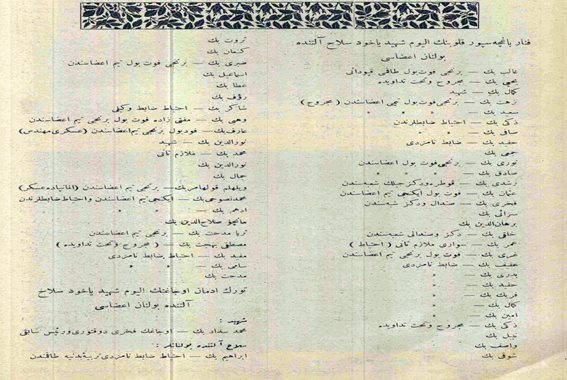 فنار باغچه سپور قلوبنك اليوم شهيد ياخود سلاح آلتنده
بولنان اعضاسى
غالب بك — برنجى فوت بول طاقى قپودانى
يحيى بك — مجروح وتحت تداويده
كمال بك — شهيد
نزهت بك — برنجى فوت بول تيمى اعضاسندن (مجروح)
سعيد بك — » » »
ذكى بك — احتياط ضابطلرندن
صاقى بك — » »
حفيد بك — ضابط نامزدى
حمى بك
نورى بك — برنجى فوت بول تيم اعضاسندن
صادق بك — » » »
رشدى بك — قوطره ودكزجيلك شعبه سندن
عثمان بك — فوت بول ايكنجى تيم اعضاسندن
فخرى بك — صندال ودكز شعبه سندن
سزائى بك
برهان الدين بك
خالقى بك — دكز وصندالى شعبه سندن
عمر بك — سوارى ملازم ثانى (احتياط)
خيرى بك — فوت بول برنجى تيم اعضاسندن
عفيف بك — ضابط نامزدى
بدرى بك — »
حفيد بك — »
فريك بك — »
كمال بك — »
امين بك — »
ذكى بك — مجروح وتحت تداويده
نبيل بك
واصف بك
شوقى بك
ثروت بك
كنعان بك
صبرى بك — برنجى فوت بول تيم اعضاسندن
اسماعيل بك
عطا بك
رؤف بك
شاكر بك — احتياط ضابط وكيلى
وهبى بك — مفتى زاده فوت بول برنجى تيم اعضاسندن
عارف بك — فودبول برنجى تيم اعضاسندن (عسكرى مهندس)
نورالدين بك — شهيد
محمد بك — ملازم ثانى
نورالدين بك
جمال بك
ويلهلم قولهامر بك — برنجى تيم اعضاسندن (المانياده عسكر)
محمد نصوحى بك — ايكنجى تيم اعضاسندن واحتياط ضابطلرندن
ادهم بك — » » »
مانجو صلاح الدين بك
ثريا مدحت بك — برنجى تيم اعضاسندن
مصطفى بهجت بك — (مجروح وتحت تداويده)
مفيد بك — احتياط ضابط نامزدى
سامى بك — » » »
مدحت بك
تورك ادمان اوجاغنك اليوم شهيد ياخود سلاح
آلتنده بولنان اعضاسى
شهيد :
محمد سداد بك — اوجاغك فخرى دوقتورى ورئيس سابقى
سلاح آلتنده بولنانلر :
ابراهيم بك — احتياط ضابط نامزدى تربيه بدنيه طاقندن